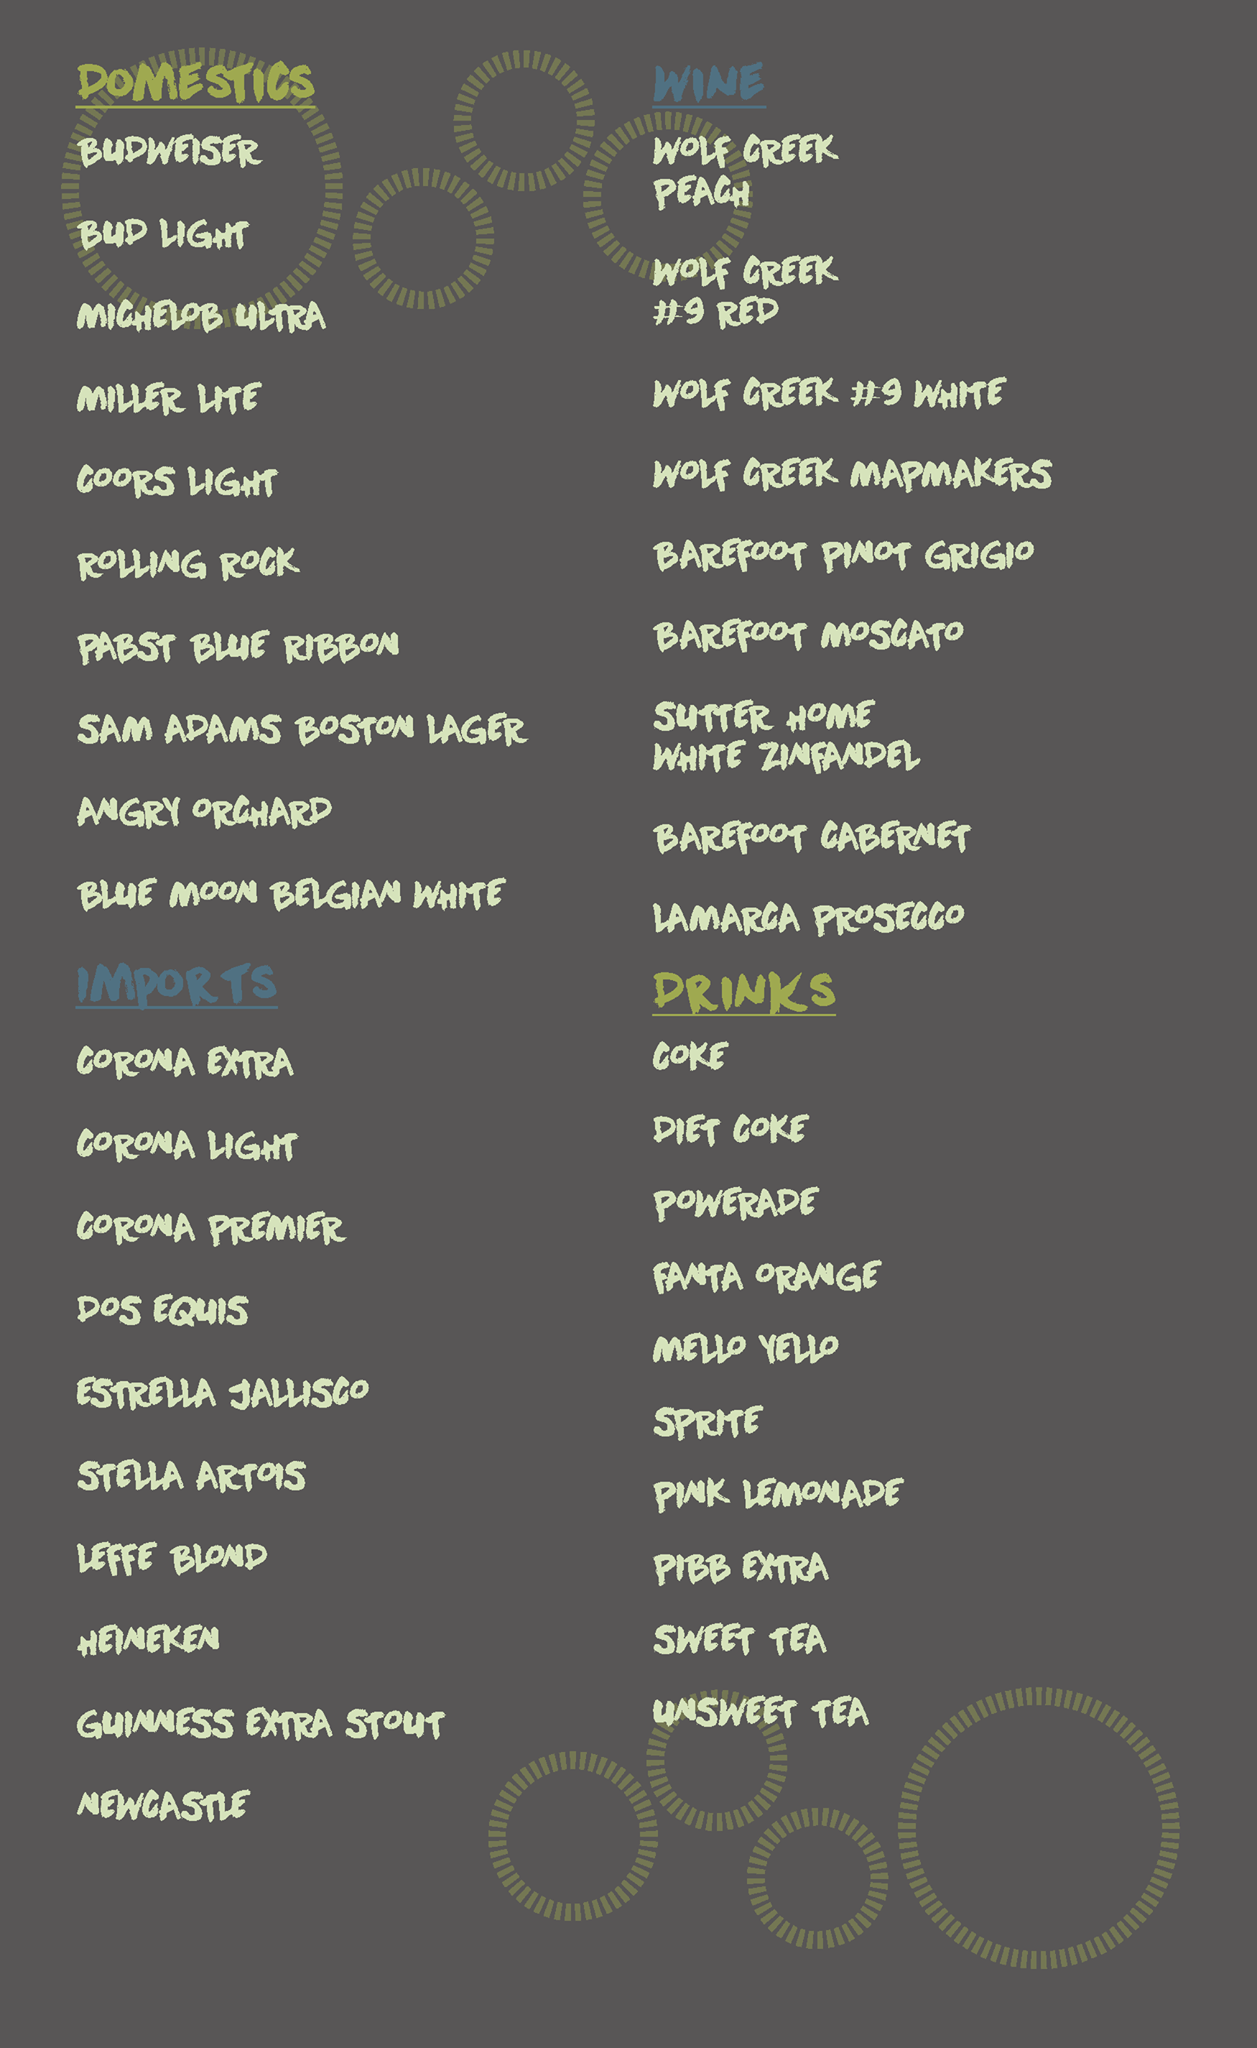 DOMESTICS
BUDWEISER
BUD LIGHT
MICHELOB ULTRA
MILLER LITE
COORS LIGHT
ROLLING ROCK
PABST BLUE RIBBON
SAM ADAMS BOSTON LAGER
ANGRY ORCHARD
BLUE MOON BELGIAN WHITE
IMPORTS
CORONA EXTRA
CORONA LIGHT
CORONA PREMIER
DOS EQUIS
ESTRELLA JALLISCO
STELLA ARTOIS
LEFFE BLOND
HEINEKEN
GUINNESS EXTRA STOUT
NEWCASTLE
WINE
WOLF CREEK
PEACH
WOLF CREEK
#9 RED
WOLF CREEK #9 WHITE
WOLF CREEK MAPMAKERS
BAREFOOT PINOT GRIGIO
BAREFOOT MOSCATO
SUTTER HOME
WHITE ZINFANDEL
BAREFOOT CABERNET
LAMARCA PROSECCO
DRINKS
COKE
DIET COKE
POWERADE
FANTA ORANGE
MELLO YELLO
SPRITE
PINK LEMONADE
PIBB EXTRA
SWEET TEA
UNSWEET TEA